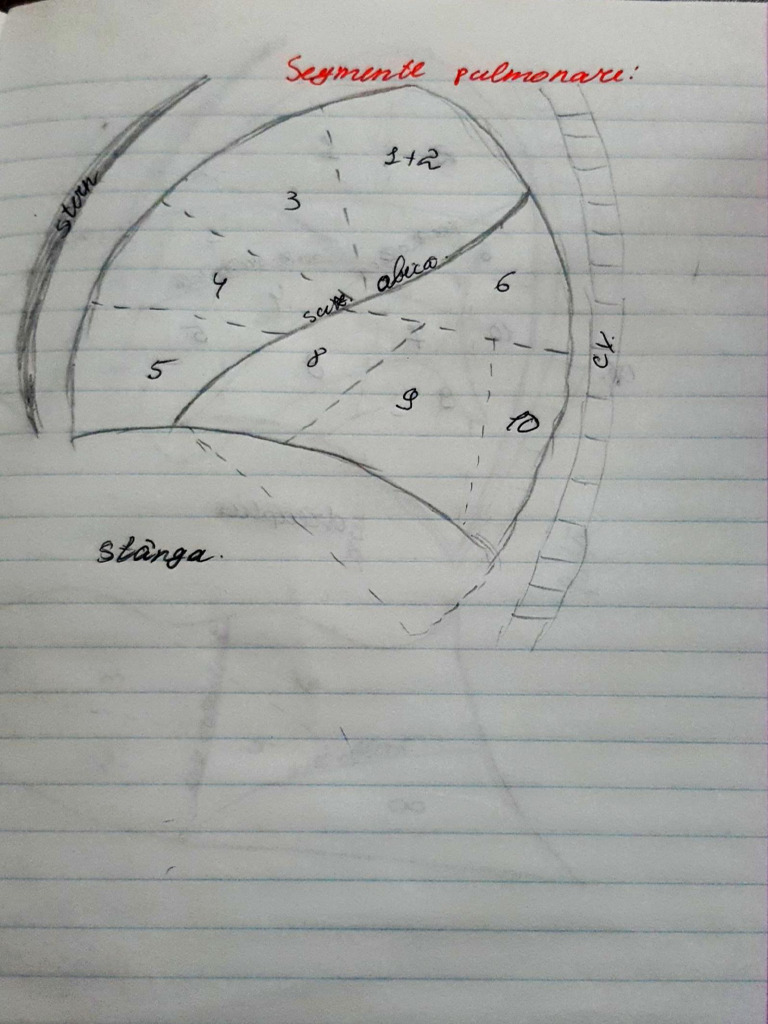 Segmente pulmonare:
1+2
3
stern
4
sciz. oblică.
6
5
8
9
10
CV.
Stânga.